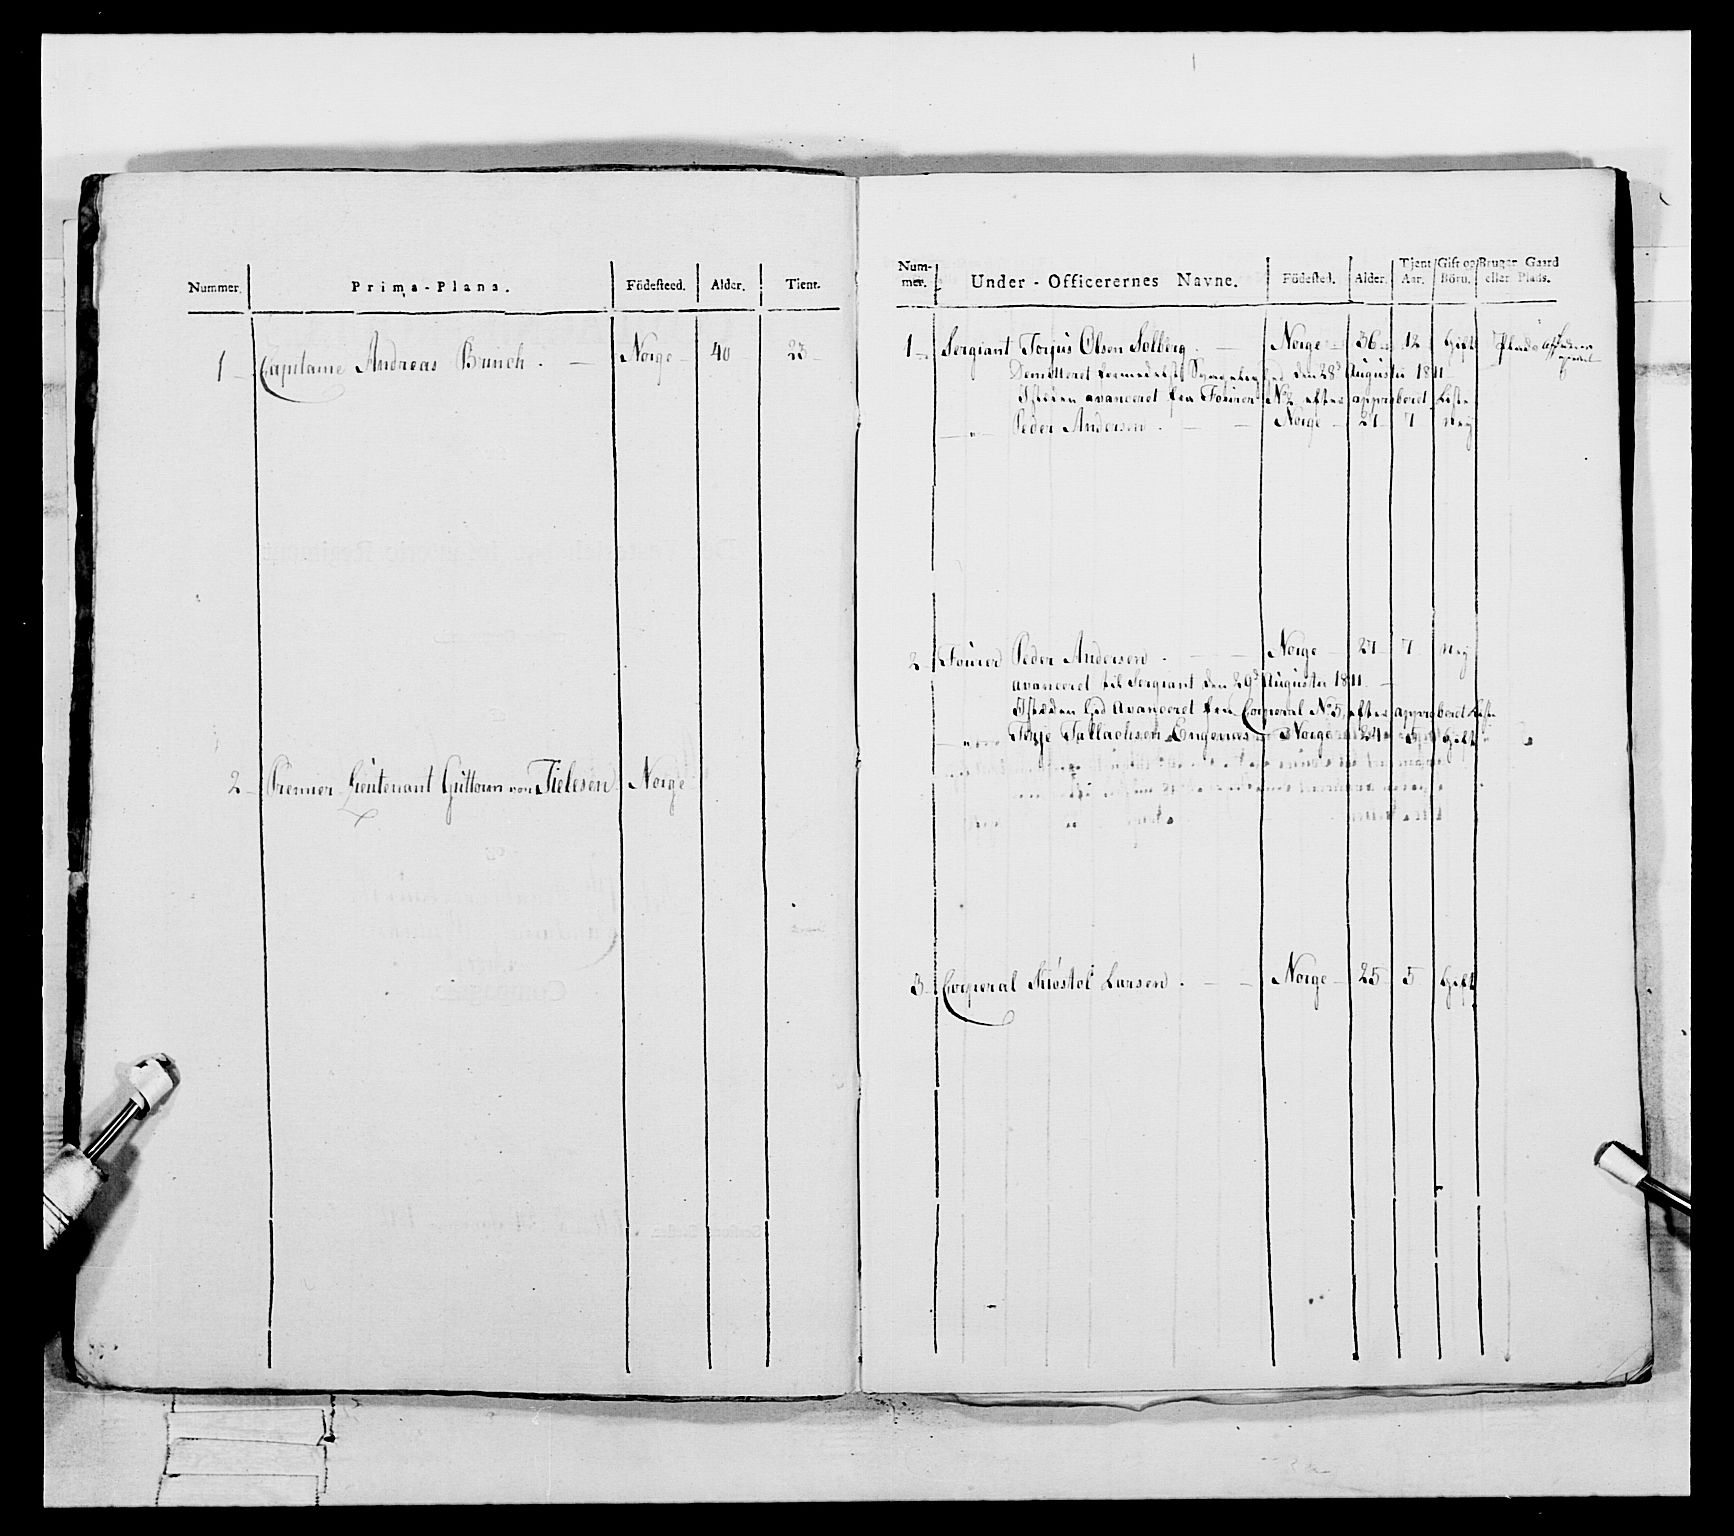 Nummer. Prima-Plana. Födesteed. Alder. Tient.
1 Capitaine Andreas Brinch. Norge 40 23
2 Premier Lieutenant Guttorm von Tielesen Norge
Num-mer. Under-Officerernes Navne. Födested. Alder. Tjent Aar. Gift og Börn. Bruger Gaard eller Plads.
1 Sergiant Torjus Olsen Solberg. Norge 36 12 Gift Plads
Demitteret formedelst Svagelighed den 28de Augusti 1811
Isteden avanceret fra Fourer No 2 efter approberet Liste
" Peder Andersen. Norge 27 7 nej
2 Fourer Peder Andersen. Norge 27 7 nej
avanceret til Sergiant den 29de Augusti 1811.
Isteden avanceret fra Corporal No 5, efter approberet Liste
" Terje Tallachsen Engenes Norge 24 5 Gift
3 Corporal Kiøstol Larsen. Norge 25 5 Gift